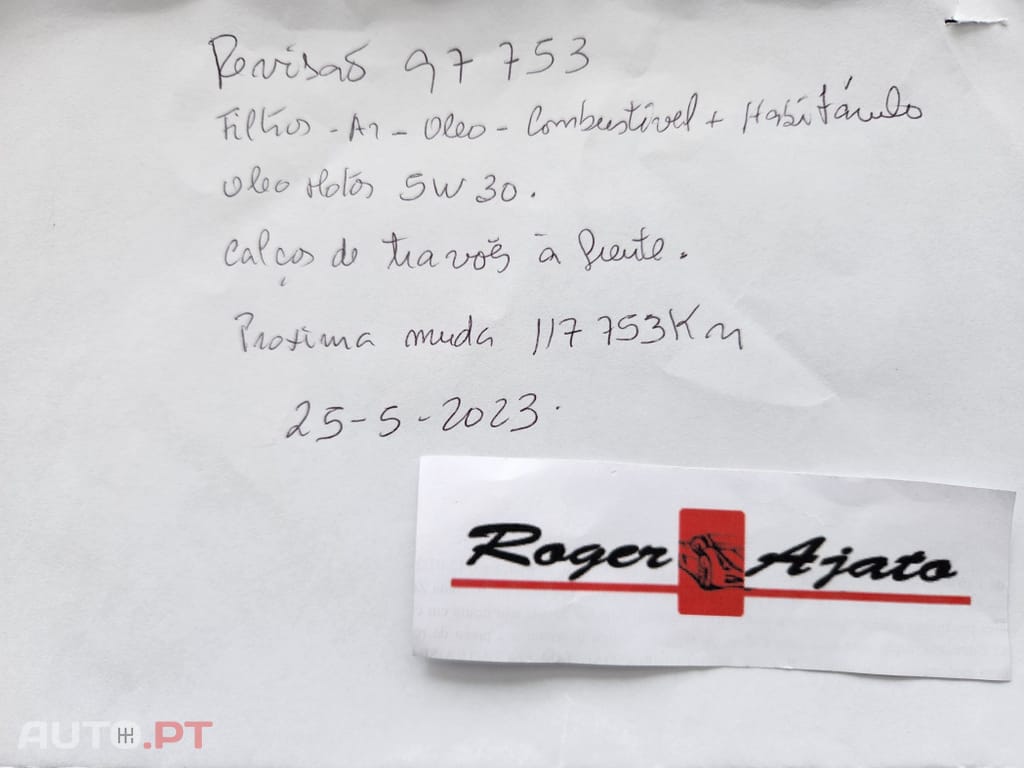 Revisão 97 753
Filtros - Ar - Oleo - Combustível + Habitáculo
Oleo Motor 5W30.
Calços de travões à frente.
Proxima muda 117 753 Km
25-5-2023.
Roger Ajato
AUTO.PT